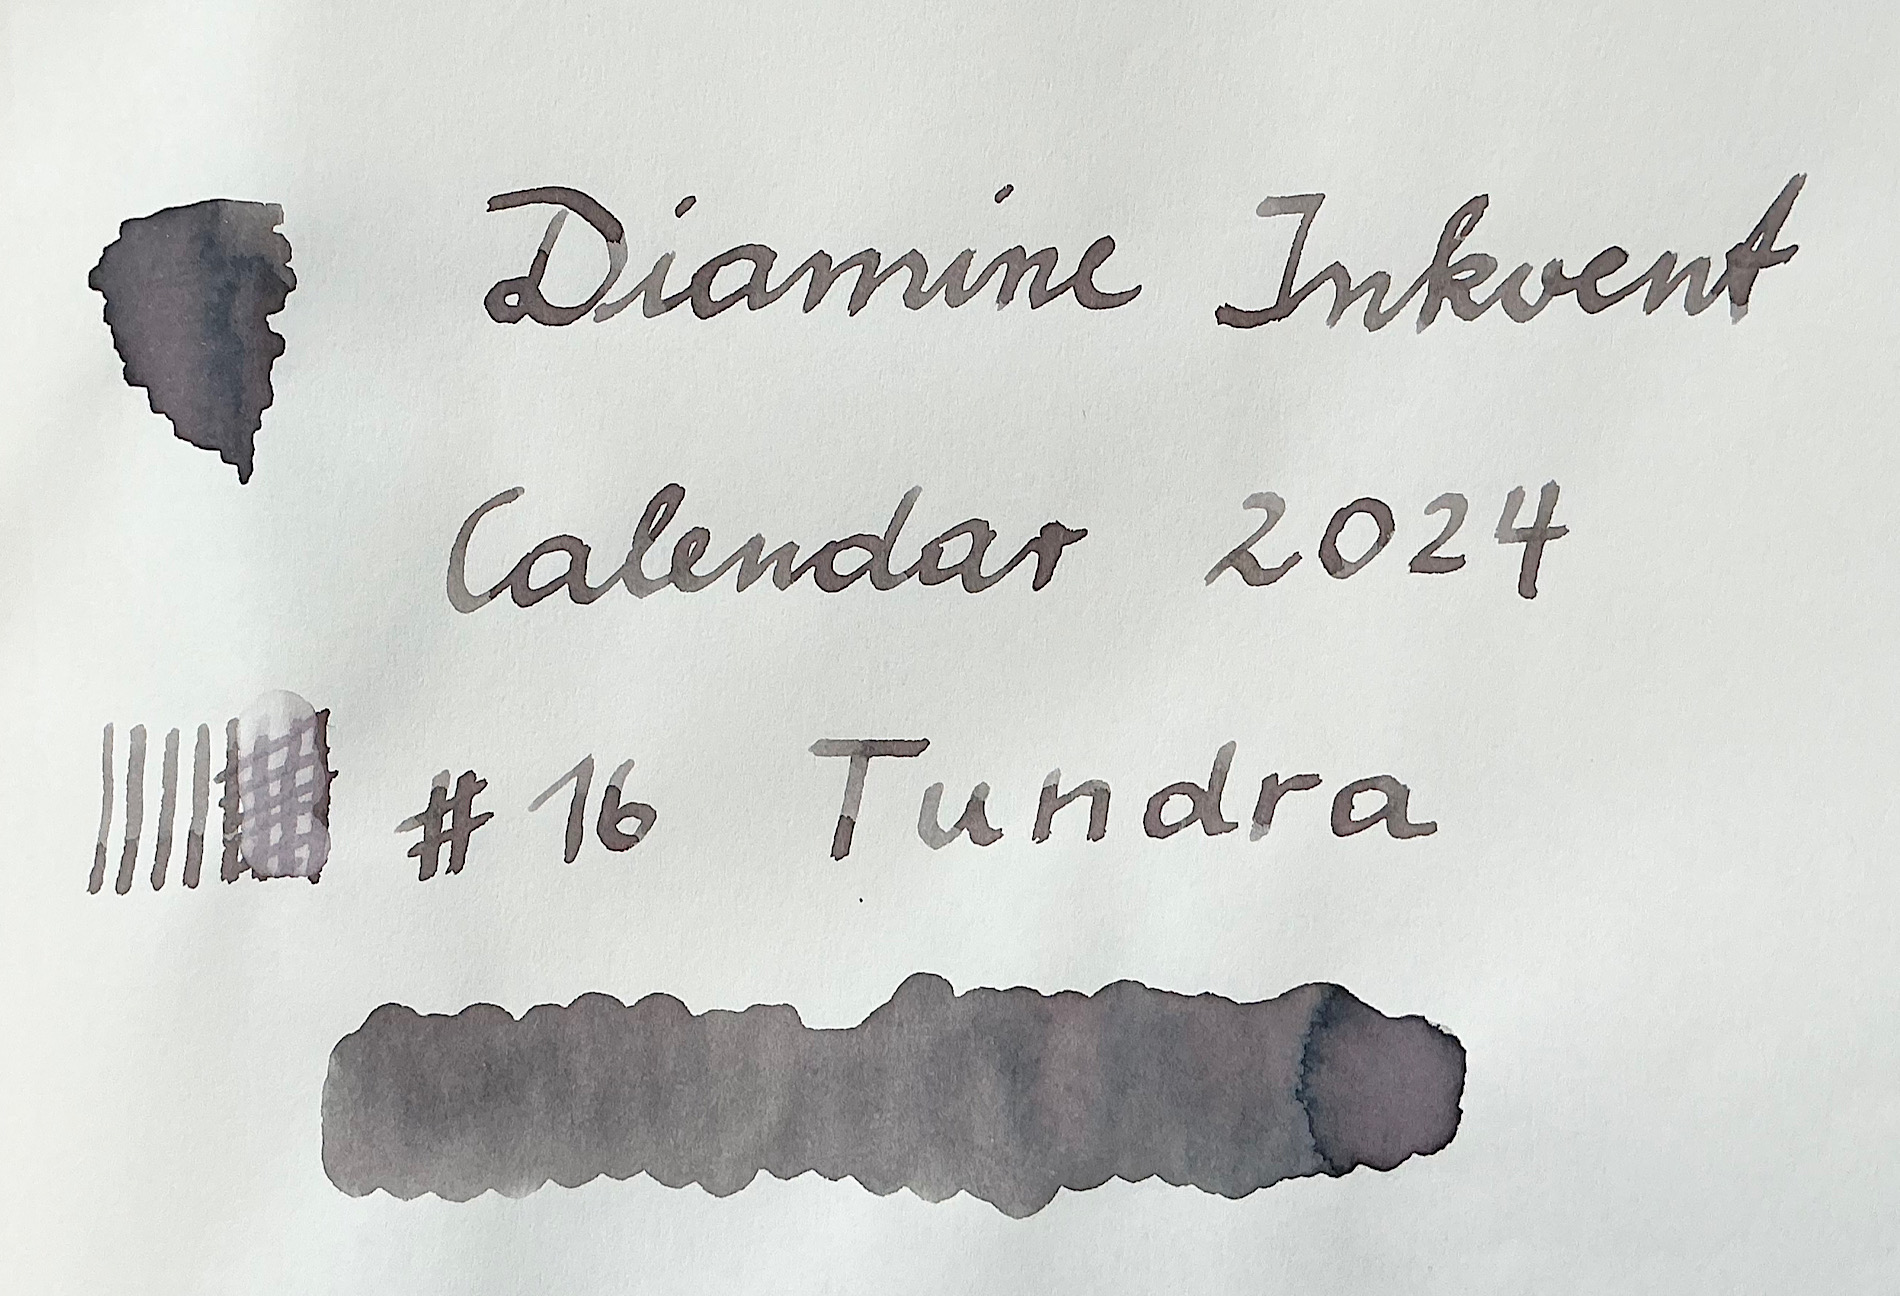 Diamine Inkvent
Calendar 2024
# 16 Tundra